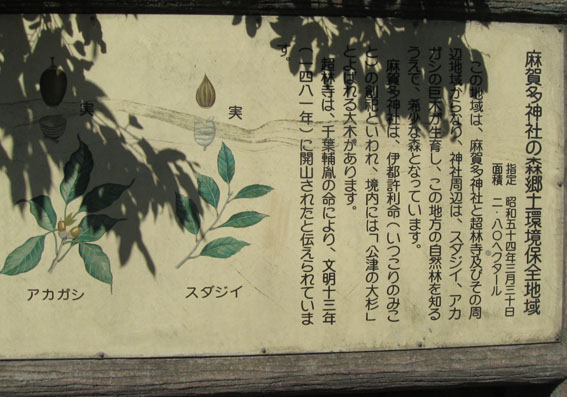 麻賀多神社の森郷土環境保全地域
指定　昭和五十四年三月三十日
面積　二・八〇ヘクタール
この地域は、麻賀多神社と超林寺及びその周
辺地域からなり、神社周辺は、スダジイ、アカ
ガシの巨木が生育し、この地方の自然林を知る
うえで、希少な森となっています。
麻賀多神社は、伊都許利命（いつこりのみこ
と）の創祀といわれ、境内には「公津の大杉」
とよばれる大木があります。
超林寺は、千葉輔胤の命により、文明十三年
（一四八一年）に開山されたと伝えられていま
す。
実
スダジイ
実
アカガシ